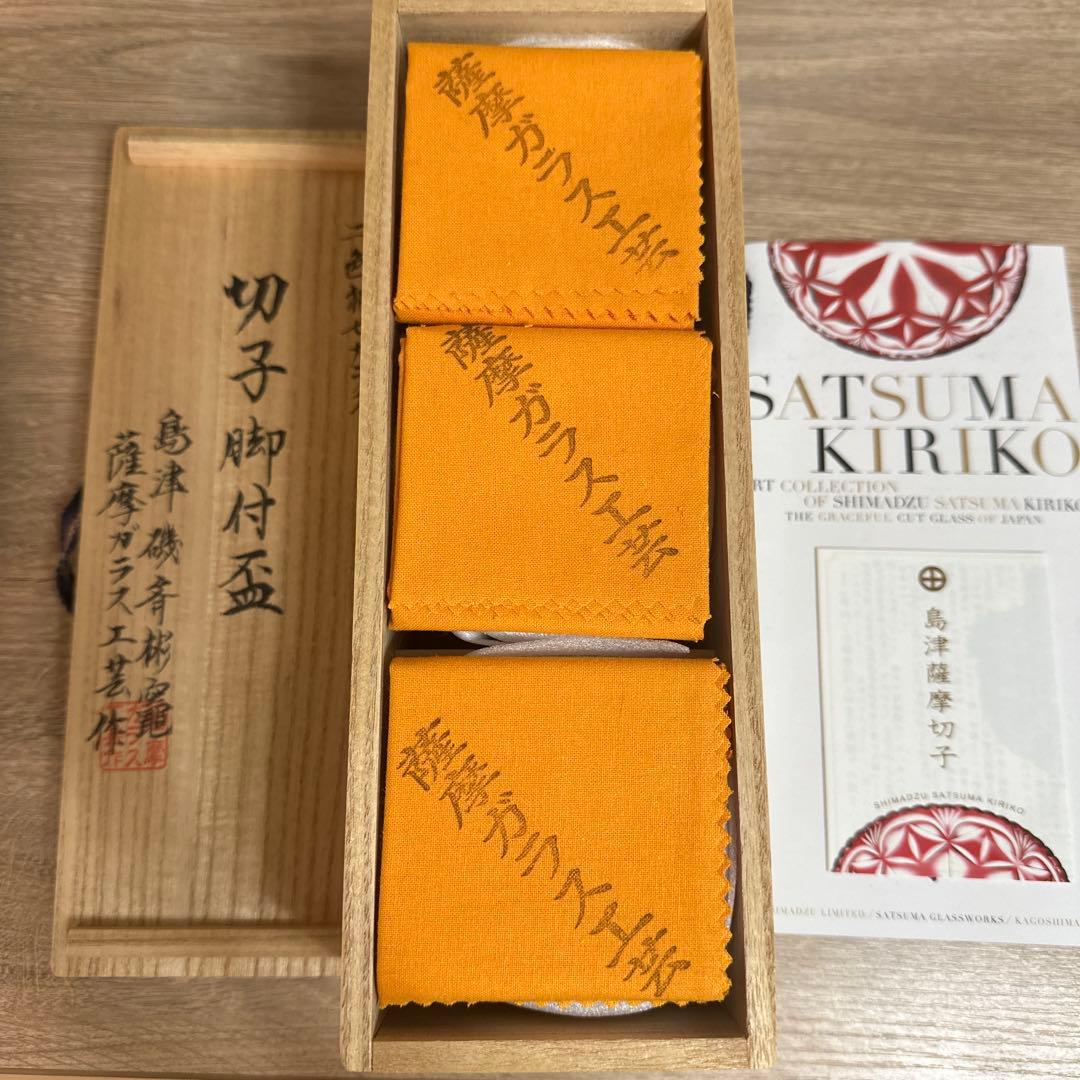 切子脚付盃
島津 磯斉彬竈
薩摩ガラス工芸 作
薩摩ガラス工芸
薩摩ガラス工芸
薩摩ガラス工芸
SATSUMA
KIRIKO
COLLECTION
OF SHIMADZU SATSUMA KIRIKO
THE GRACEFUL CUT GLASS OF JAPAN
島津薩摩切子
SHIMADZU SATSUMA KIRIKO
LIMITED / SATSUMA GLASSWORKS / KAGOSHIMA